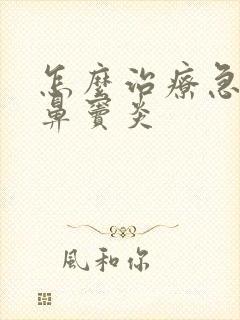 怎麼治療急
鼻竇炎
風和你